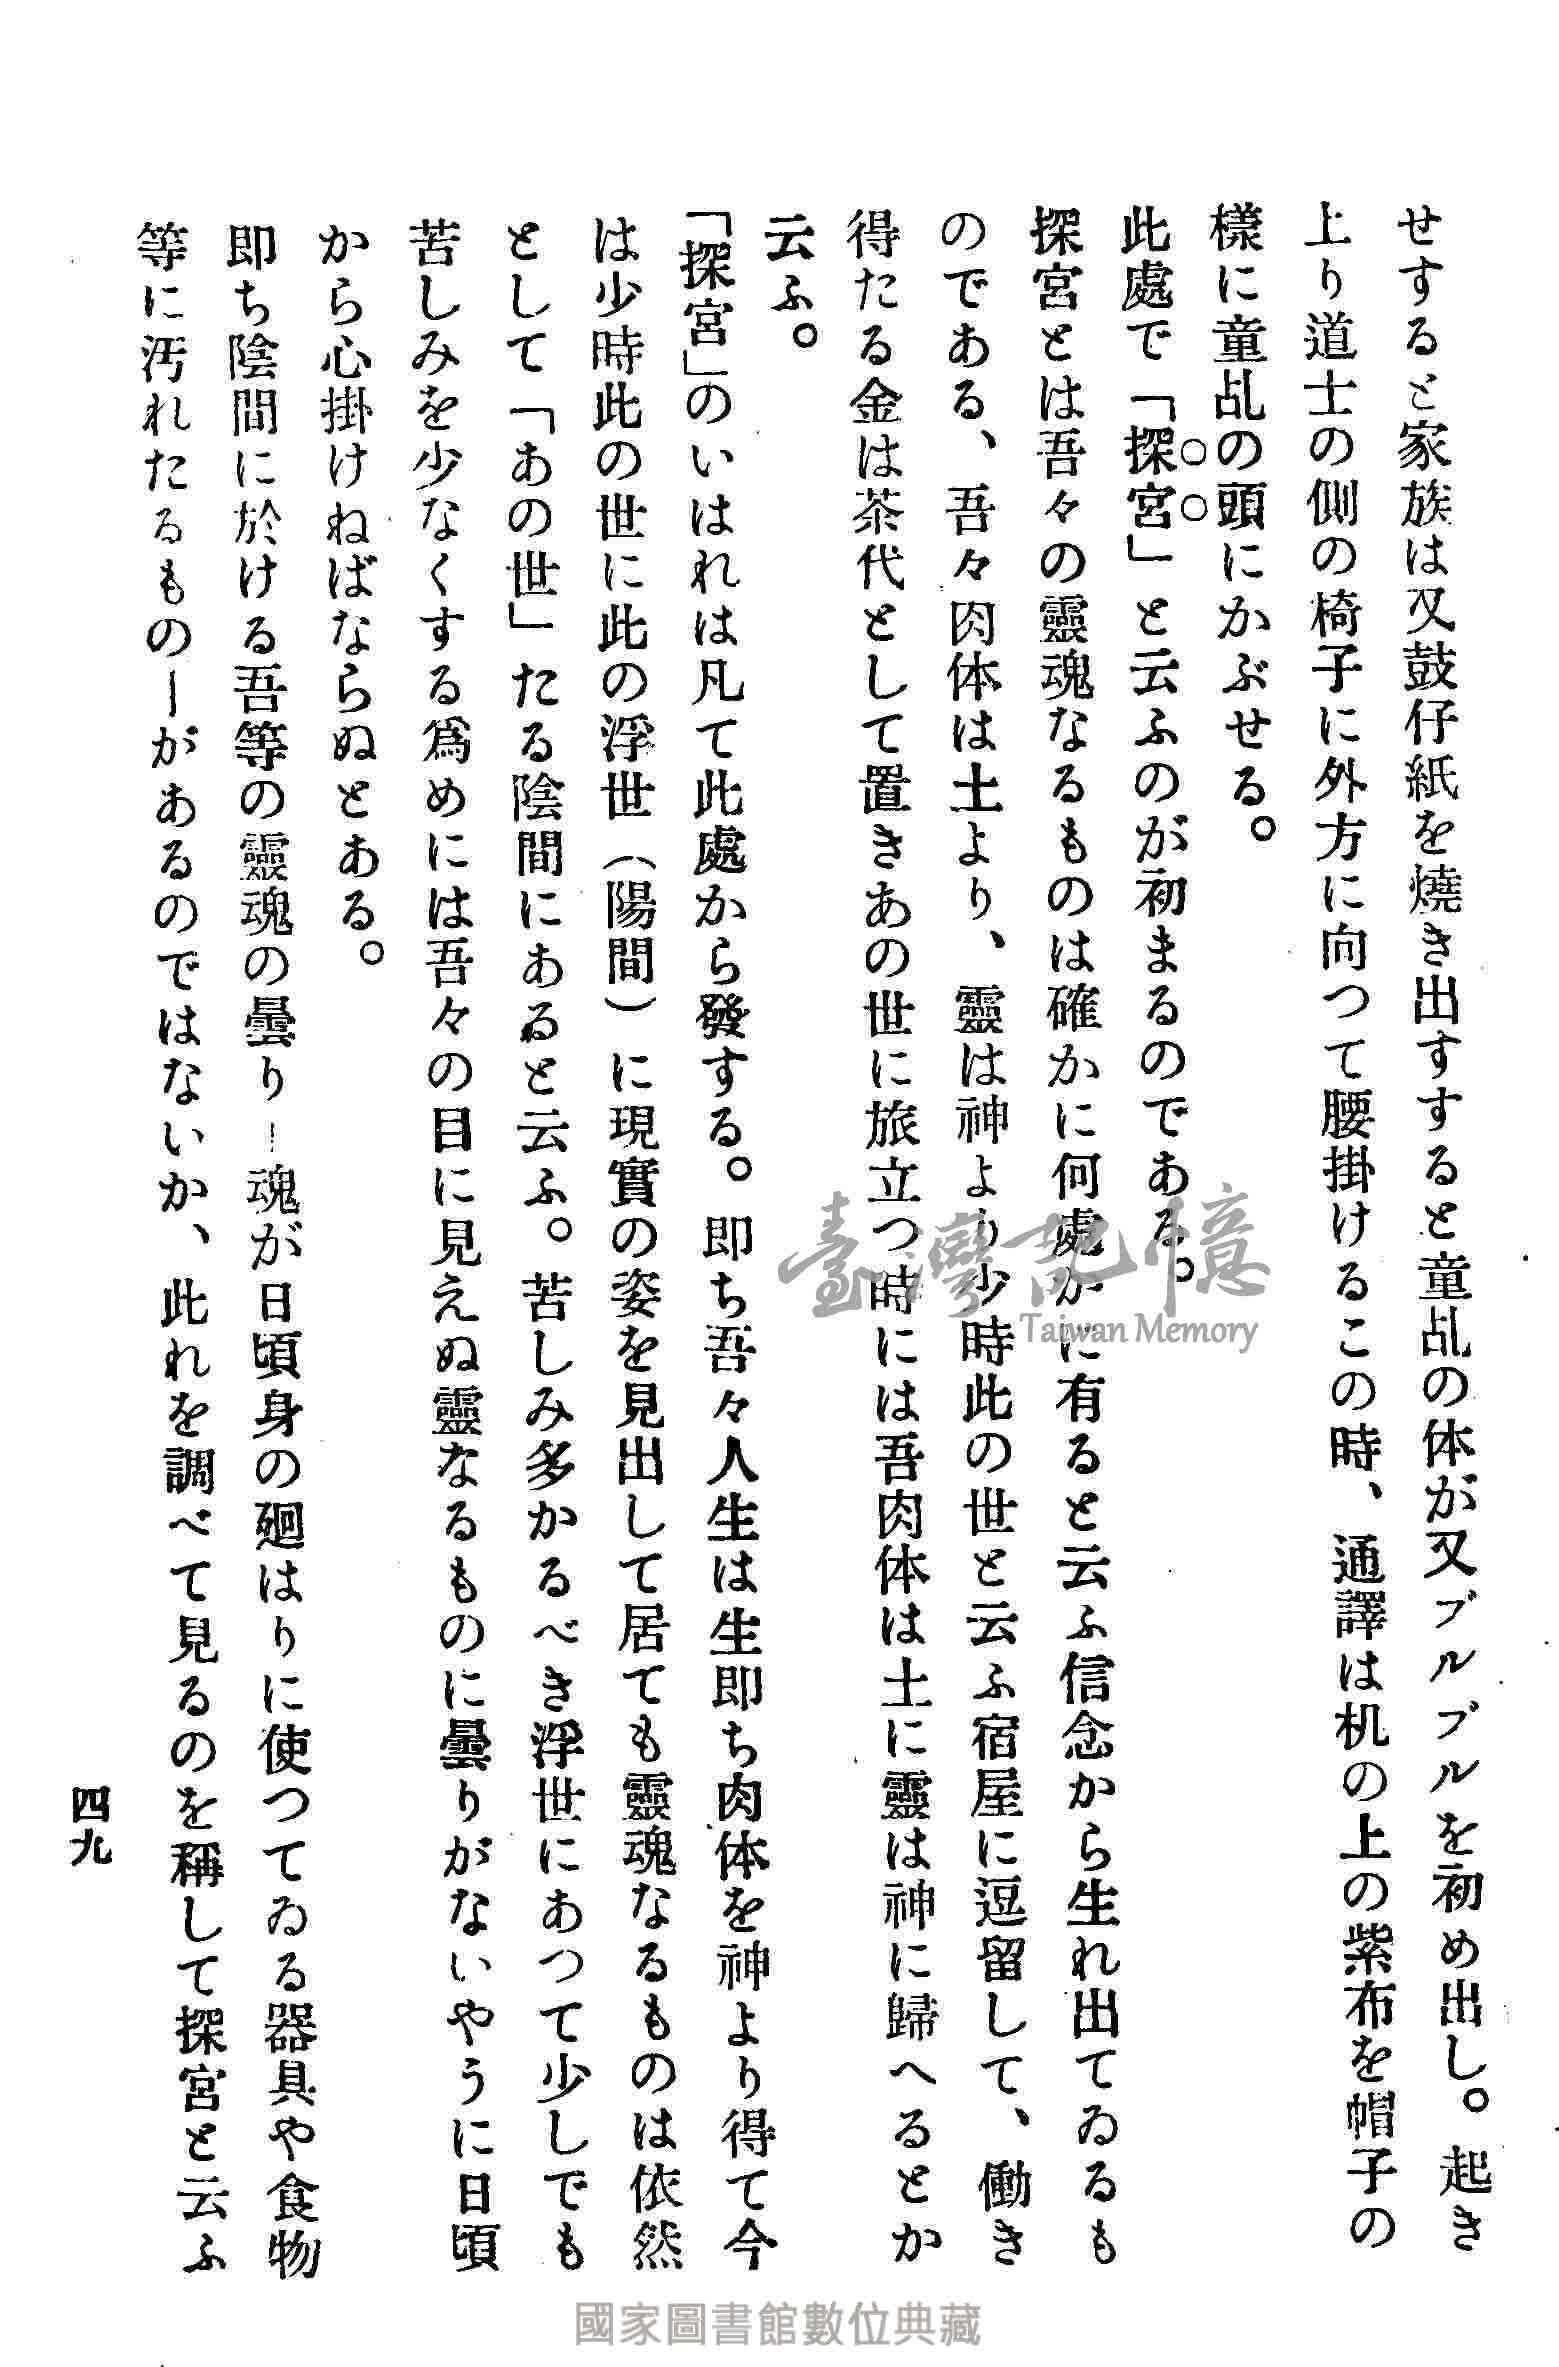 せすると家族は又鼓仔紙を燒き出すすると童乩の体が又ブルブルを初め出し。起き
上り道士の側の椅子に外方に向つて腰掛けるこの時、通譯は机の上の紫布を帽子の
樣に童乩の頭にかぶせる。
此處で「探宮」と云ふのが初まるのである。
探宮とは吾々の靈魂なるものは確かに何處かに有ると云ふ信念から生れ出てゐるも
のである、吾々肉体は土より、靈は神より少時此の世と云ふ宿屋に逗留して、働き
得たる金は茶代として置きあの世に旅立つ時には吾肉体は土に靈は神に歸へるとか
云ふ。
「探宮」のいはれは凡て此處から發する。即ち吾々人生は生即ち肉体を神より得て今
は少時此の世に此の浮世（陽間）に現實の姿を見出して居ても靈魂なるものは依然
として「あの世」たる陰間にあると云ふ。苦しみ多かるべき浮世にあつて少しでも
苦しみを少なくする爲めには吾々の目に見えぬ靈なるものに曇りがないやうに日頃
から心掛けねばならぬとある。
即ち陰間に於ける吾等の靈魂の曇り―魂が日頃身の廻はりに使つてゐる器具や食物
等に汚れたるもの―があるのではないか、此れを調べて見るのを稱して探宮と云ふ
四九
臺灣記憶
Taiwan Memory
國家圖書館數位典藏